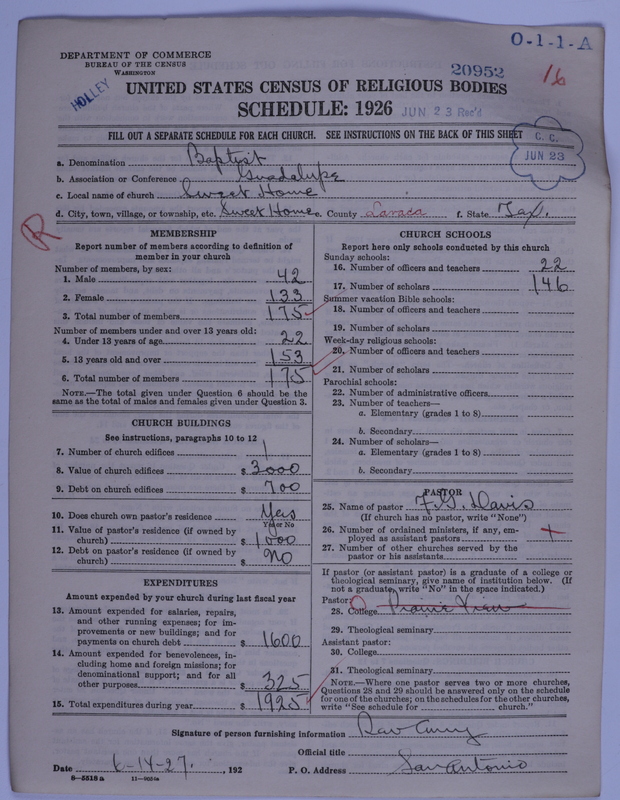 O-1-1-A
DEPARTMENT OF COMMERCE
BUREAU OF THE CENSUS
WASHINGTON
HOLLEY
20952
16
UNITED STATES CENSUS OF RELIGIOUS BODIES
SCHEDULE: 1926 JUN 23 Rec'd
FILL OUT A SEPARATE SCHEDULE FOR EACH CHURCH. SEE INSTRUCTIONS ON THE BACK OF THIS SHEET
C. C.
JUN 23
a. Denomination Baptist
b. Association or Conference Guadalupe
c. Local name of church Sweet Home
d. City, town, village, or township, etc. Sweet Home e. County Lavaca f. State Tex.
R
MEMBERSHIP
Report number of members according to definition of
member in your church
Number of members, by sex:
1. Male 42
2. Female 133
3. Total number of members 175
Number of members under and over 13 years old:
4. Under 13 years of age 22
5. 13 years old and over 153
6. Total number of members 175
NOTE.—The total given under Question 6 should be the
same as the total of males and females given under Question 3.
CHURCH BUILDINGS
See instructions, paragraphs 10 to 12
7. Number of church edifices 1
8. Value of church edifices $ 3000
9. Debt on church edifices $ 700
10. Does church own pastor's residence Yes
Yes or No
11. Value of pastor's residence (if owned by
church) $ 1000
12. Debt on pastor's residence (if owned by
church) $ No
EXPENDITURES
Amount expended by your church during last fiscal year
13. Amount expended for salaries, repairs,
and other running expenses; for im-
provements or new buildings; and for
payments on church debt $ 1600
14. Amount expended for benevolences, in-
cluding home and foreign missions; for
denominational support; and for all
other purposes $ 325
15. Total expenditures during year $ 1925
CHURCH SCHOOLS
Report here only schools conducted by this church
Sunday schools:
16. Number of officers and teachers 22
17. Number of scholars 146
Summer vacation Bible schools:
18. Number of officers and teachers
19. Number of scholars
Week-day religious schools:
20. Number of officers and teachers
21. Number of scholars
Parochial schools:
22. Number of administrative officers
23. Number of teachers—
a. Elementary (grades 1 to 8)
b. Secondary
24. Number of scholars—
a. Elementary (grades 1 to 8)
b. Secondary
PASTOR
25. Name of pastor F. G. Davis
(If church has no pastor, write "None")
26. Number of ordained ministers, if any, em-
ployed as assistant pastors
27. Number of other churches served by the
pastor or his assistants
If pastor (or assistant pastor) is a graduate of a college or
theological seminary, give name of institution below. (If
not a graduate, write "No" in the space indicated.)
Pastor:
28. College Prairie View
29. Theological seminary
Assistant pastor:
30. College
31. Theological seminary
NOTE.—Where one pastor serves two or more churches,
Questions 28 and 29 should be answered only on the schedule
for one of the churches; on the schedules for the other churches,
write "See schedule for church."
Signature of person furnishing information
Official title
Date 6-14-27, 192 P. O. Address San Antonio
8-5518a 11-9034a